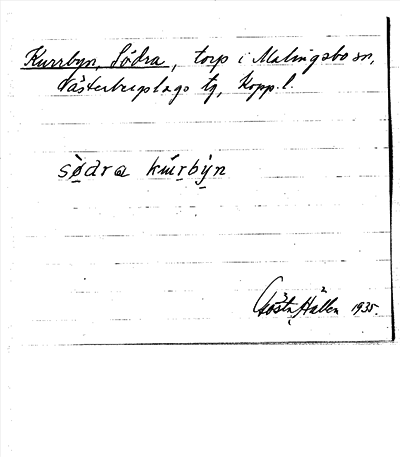 Kurrbyn, Södra, torp i Malingsbo sn,
Västerbergslags tg, Kopp. l.
södra kurbyn
Gösta Hallén 1935.